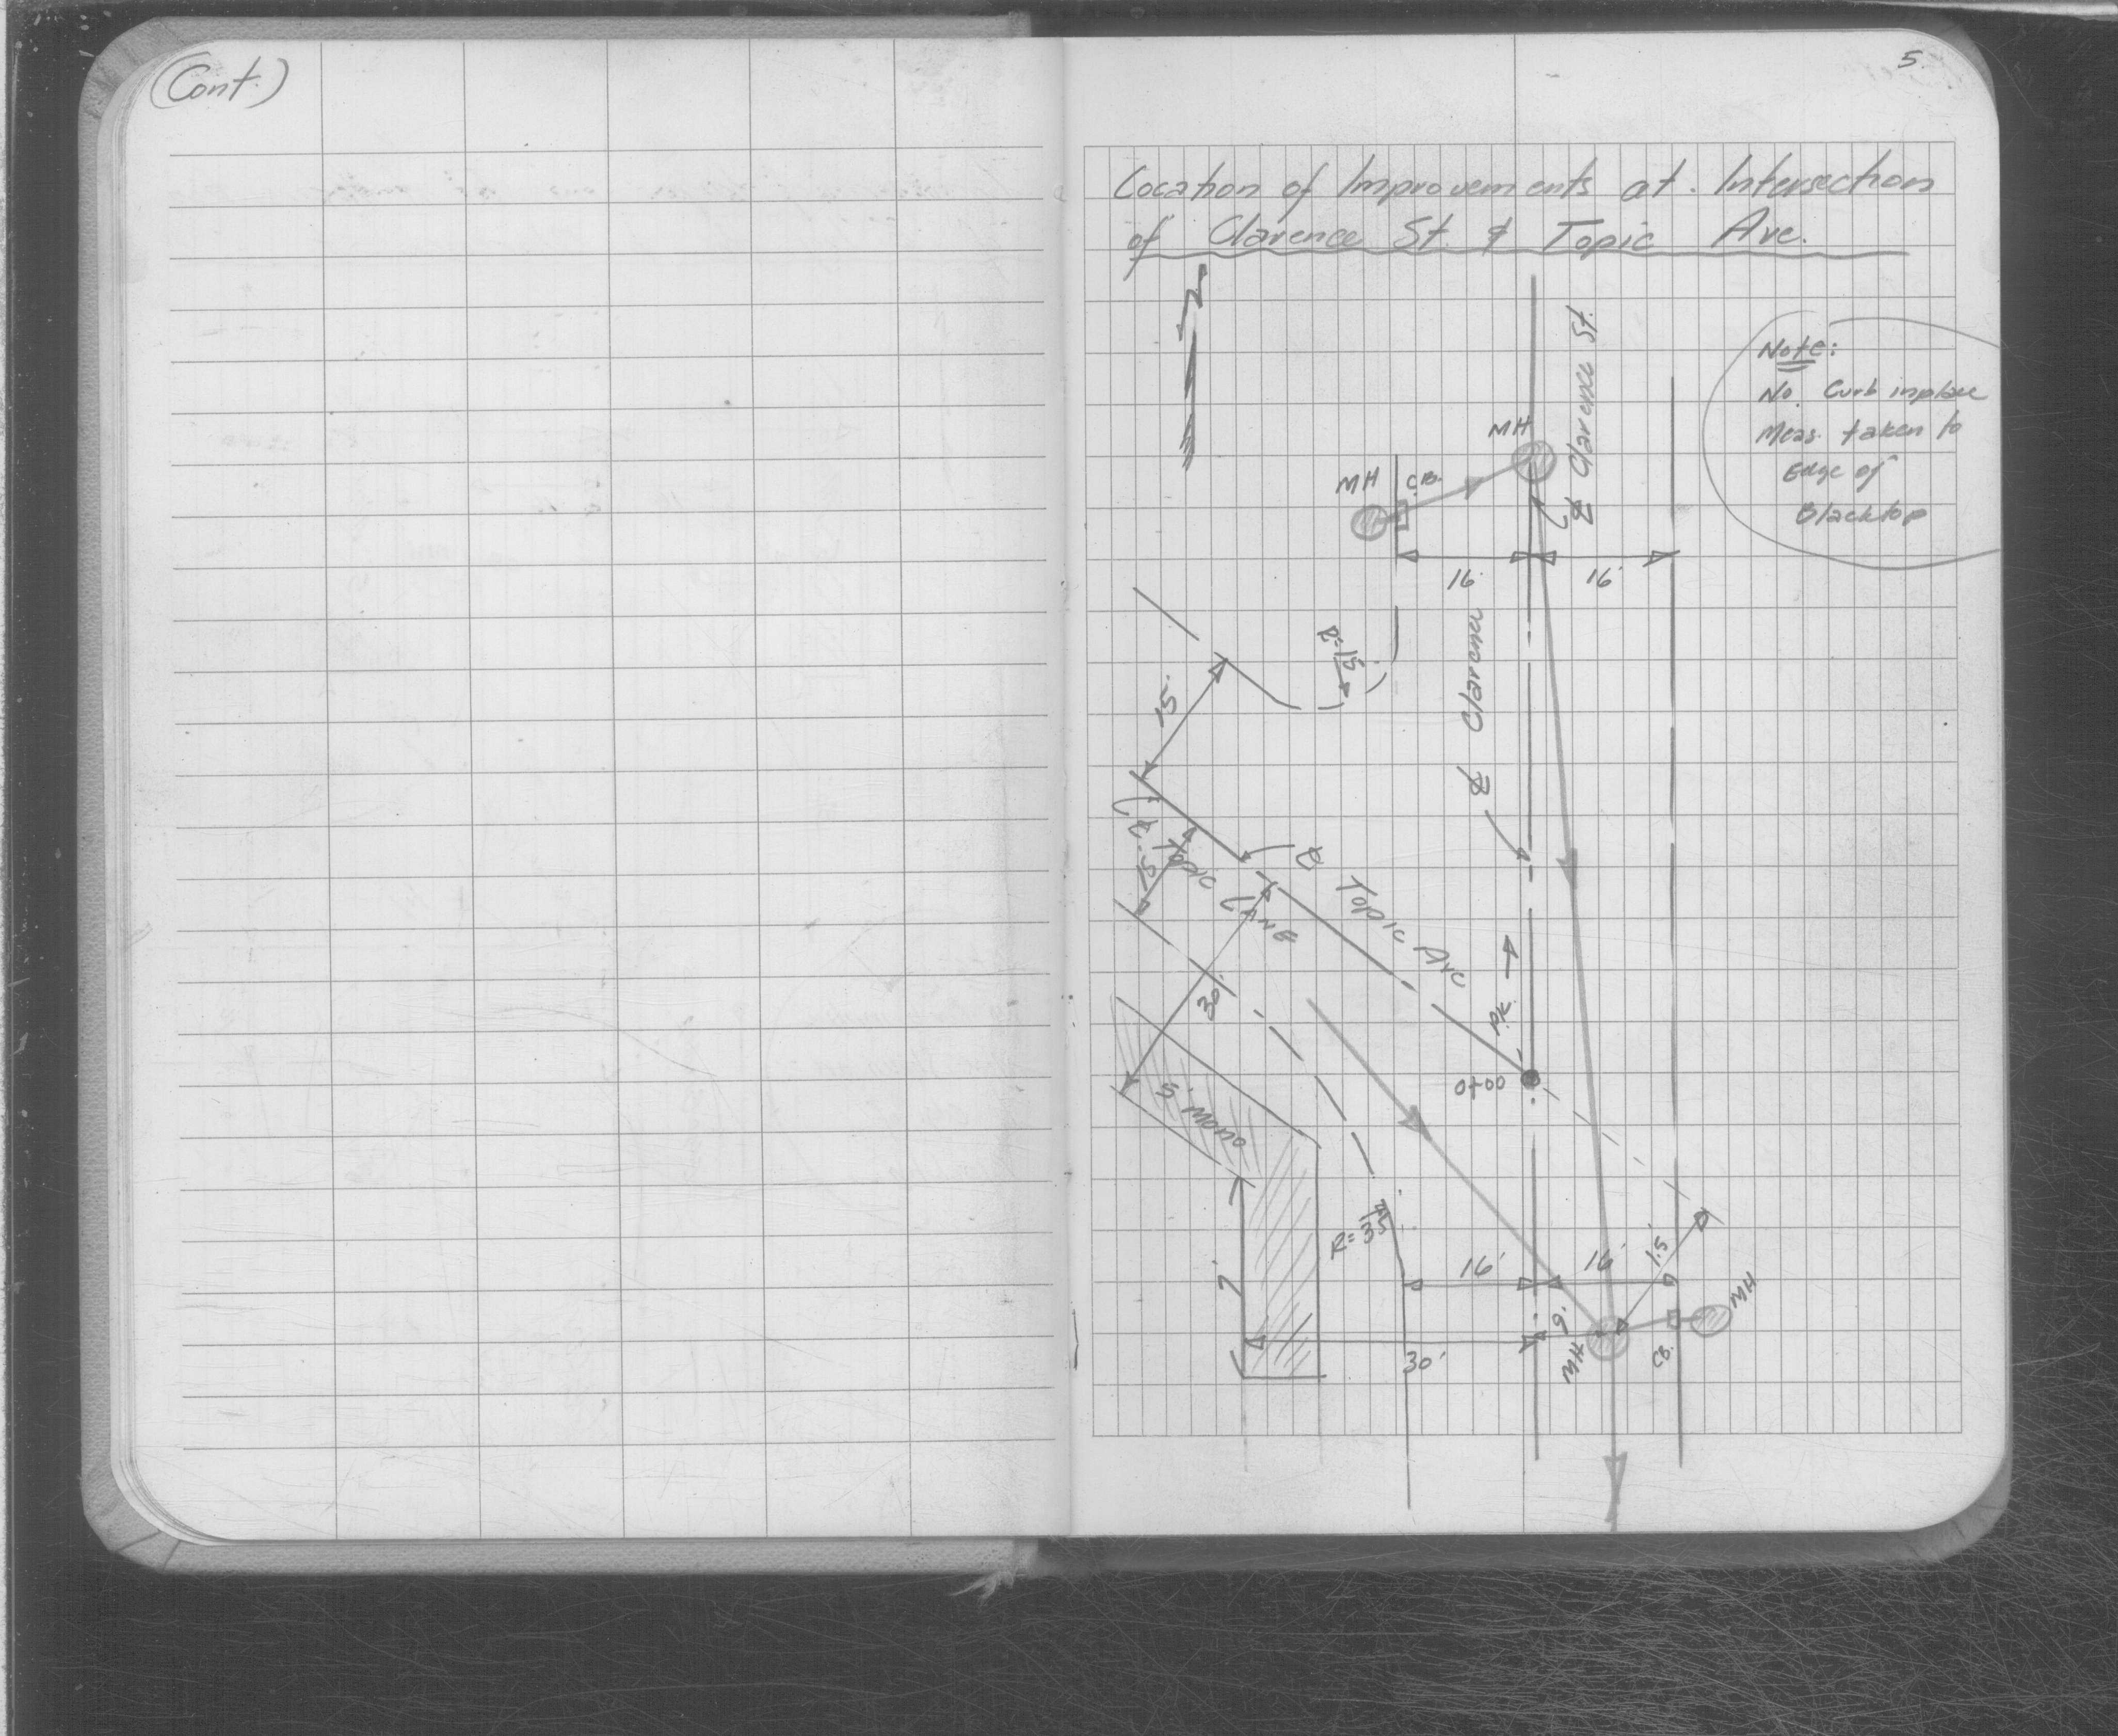 (Cont.)
5.
Location of Improvements at. Intersection
of Clarence St. & Topic Ave.
Note:
No. Curb inplace
Meas. taken to
Edge of
Blacktop
℄ Clarence St.
MH
MH
C.B.
16'
16'
R=15'
℄ Clarence
15'
15'
℄ Topic Ave
Topic Lane
30'
P.K.
0+00
5' mono
R=35'
16'
16'
15'
?
9'
30'
MH
C.B.
MH